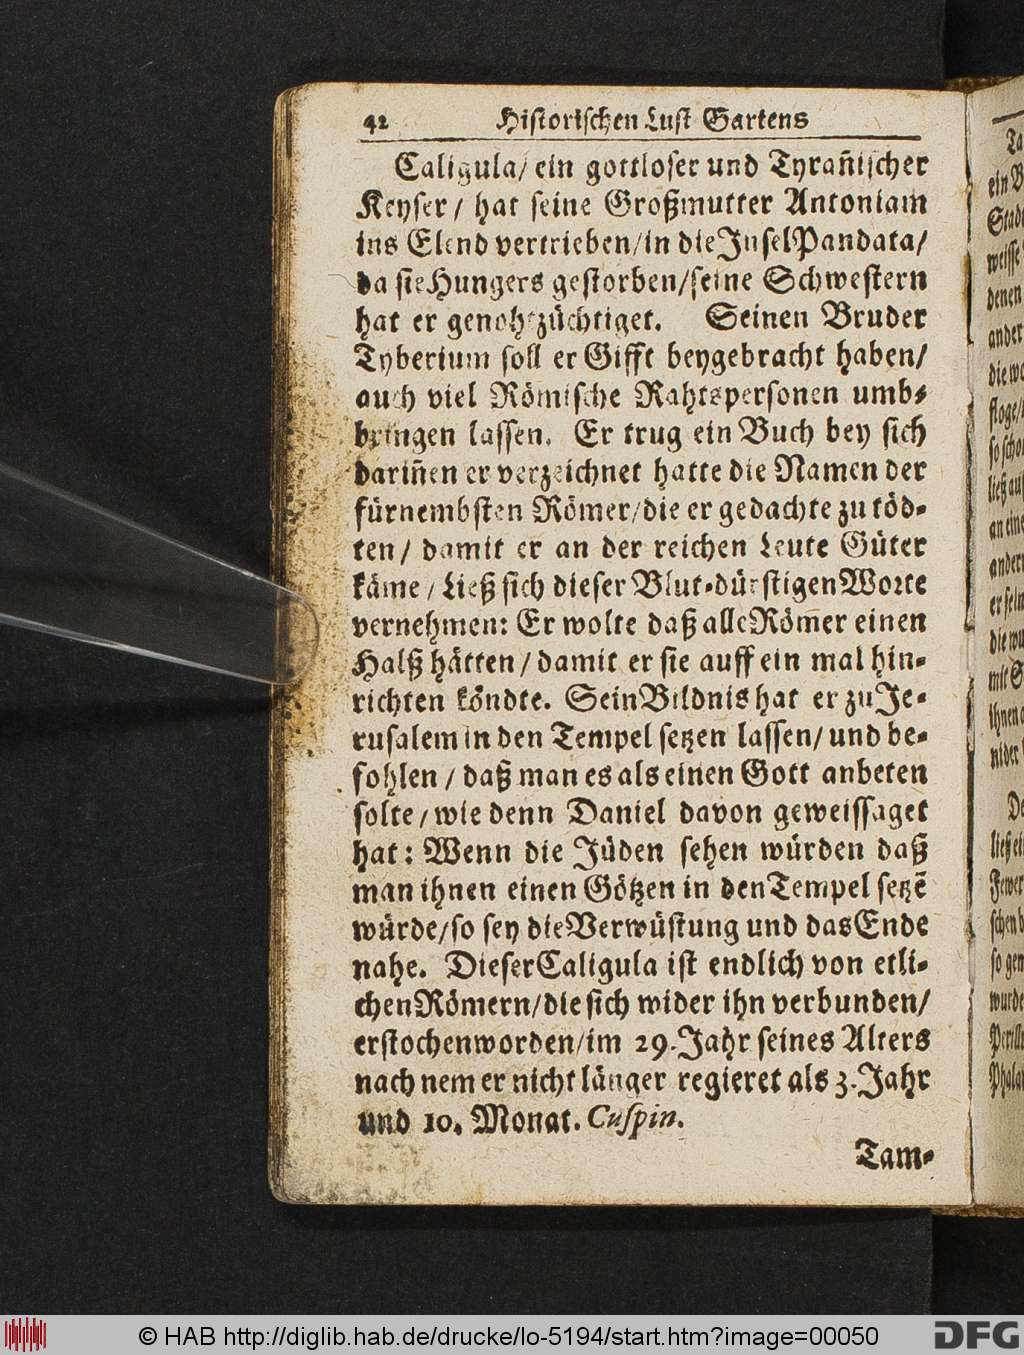 42 Historischen Lust Gartens
Caligula/ ein gottloser und Tyrañischer
Keyser/ hat seine Großmutter Antoniam
ins Elend vertrieben/in die Insel Pandata/
da sie Hungers gestorben/seine Schwestern
hat er genohtzüchtiget. Seinen Bruder
Tyberium soll er Gifft beygebracht haben/
auch viel Römische Rahtspersonen umb-
bringen lassen. Er trug ein Buch bey sich
dariñen er verzeichnet hatte die Namen der
fürnembsten Römer/die er gedachte zu töd-
ten/ damit er an der reichen Leute Güter
käme/ Ließ sich dieser Blut-dürstigen Worte
vernehmen: Er wolte daß alle Römer einen
Halß hätten/ damit er sie auff ein mal hin-
richten köndte. Sein Bildnis hat er zu Je-
rusalem in den Tempel setzen lassen/ und be-
fohlen/ daß man es als einen Gott anbeten
solte/ wie denn Daniel davon geweissaget
hat: Wenn die Jüden sehen würden daß
man ihnen einen Götzen in den Tempel setzẽ
würde/so sey die Verwüstung und das Ende
nahe. Dieser Caligula ist endlich von etli-
chen Römern/die sich wider ihn verbunden/
erstochen worden/im 29. Jahr seines Alters
nach nem er nicht länger regieret als 3. Jahr
und 10. Monat. Cuspin.
Tam-
ein B
Stad
weisse
denen
ander
die wo
so scho
ließ au
an eine
andern
er sein
die wu
mit S
ihnen
nider
De
ließ ei
Fewer
schen b
so gem
wurde
Perill
Phala
© HAB http://diglib.hab.de/drucke/lo-5194/start.htm?image=00050
DFG